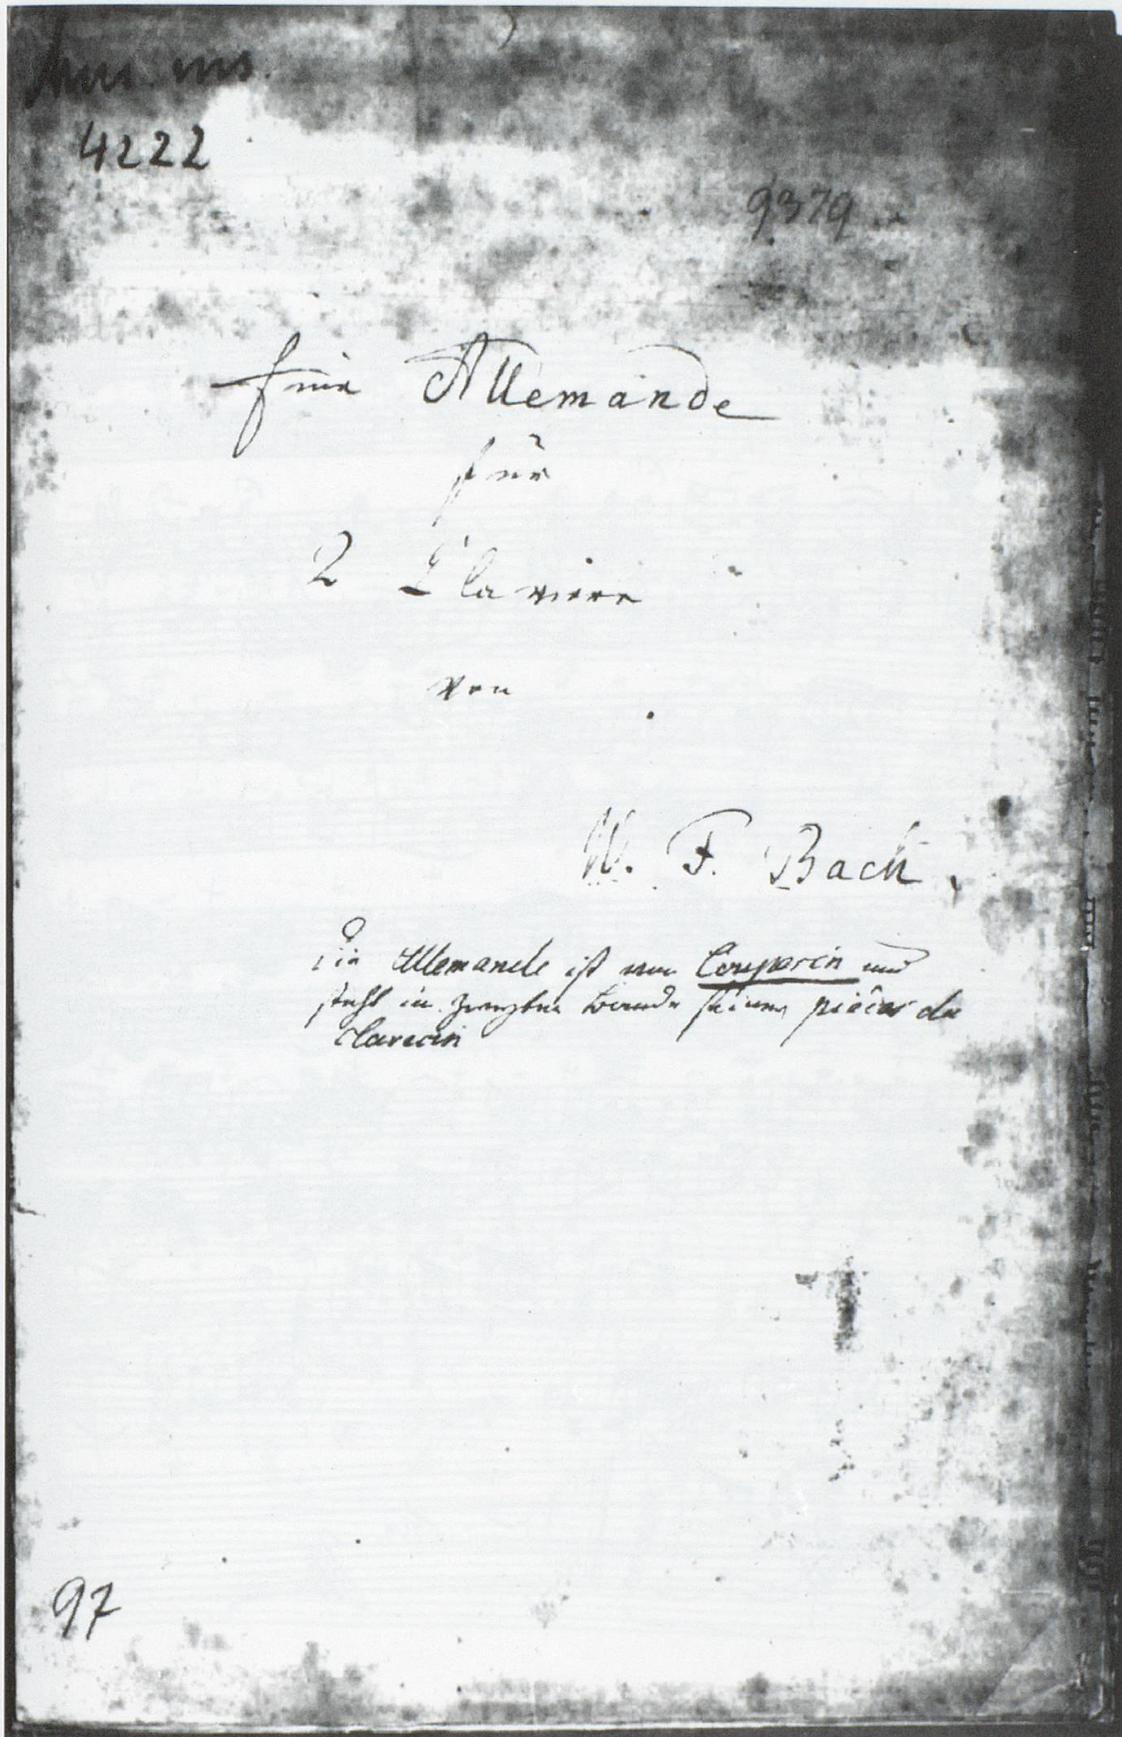 Mus. ms.
4222
9379
Eine Allemande
für
2 Claviere
von
W. F. Bach.
Die Allemande ist von Couperin und
steht im zweyten Bande seiner pièces de
Clavecin
97